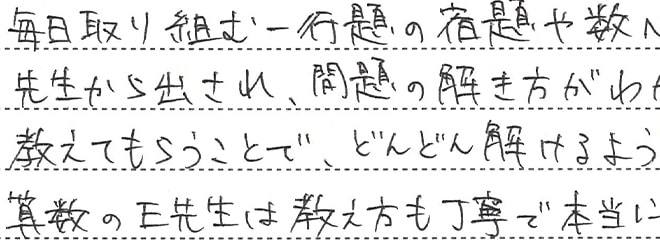 毎日取り組む一行題の宿題や数
先生から出され、問題の解き方がわ
教えてもらうことで、どんどん解けるよう
算数の王先生は教え方も丁寧で本当に